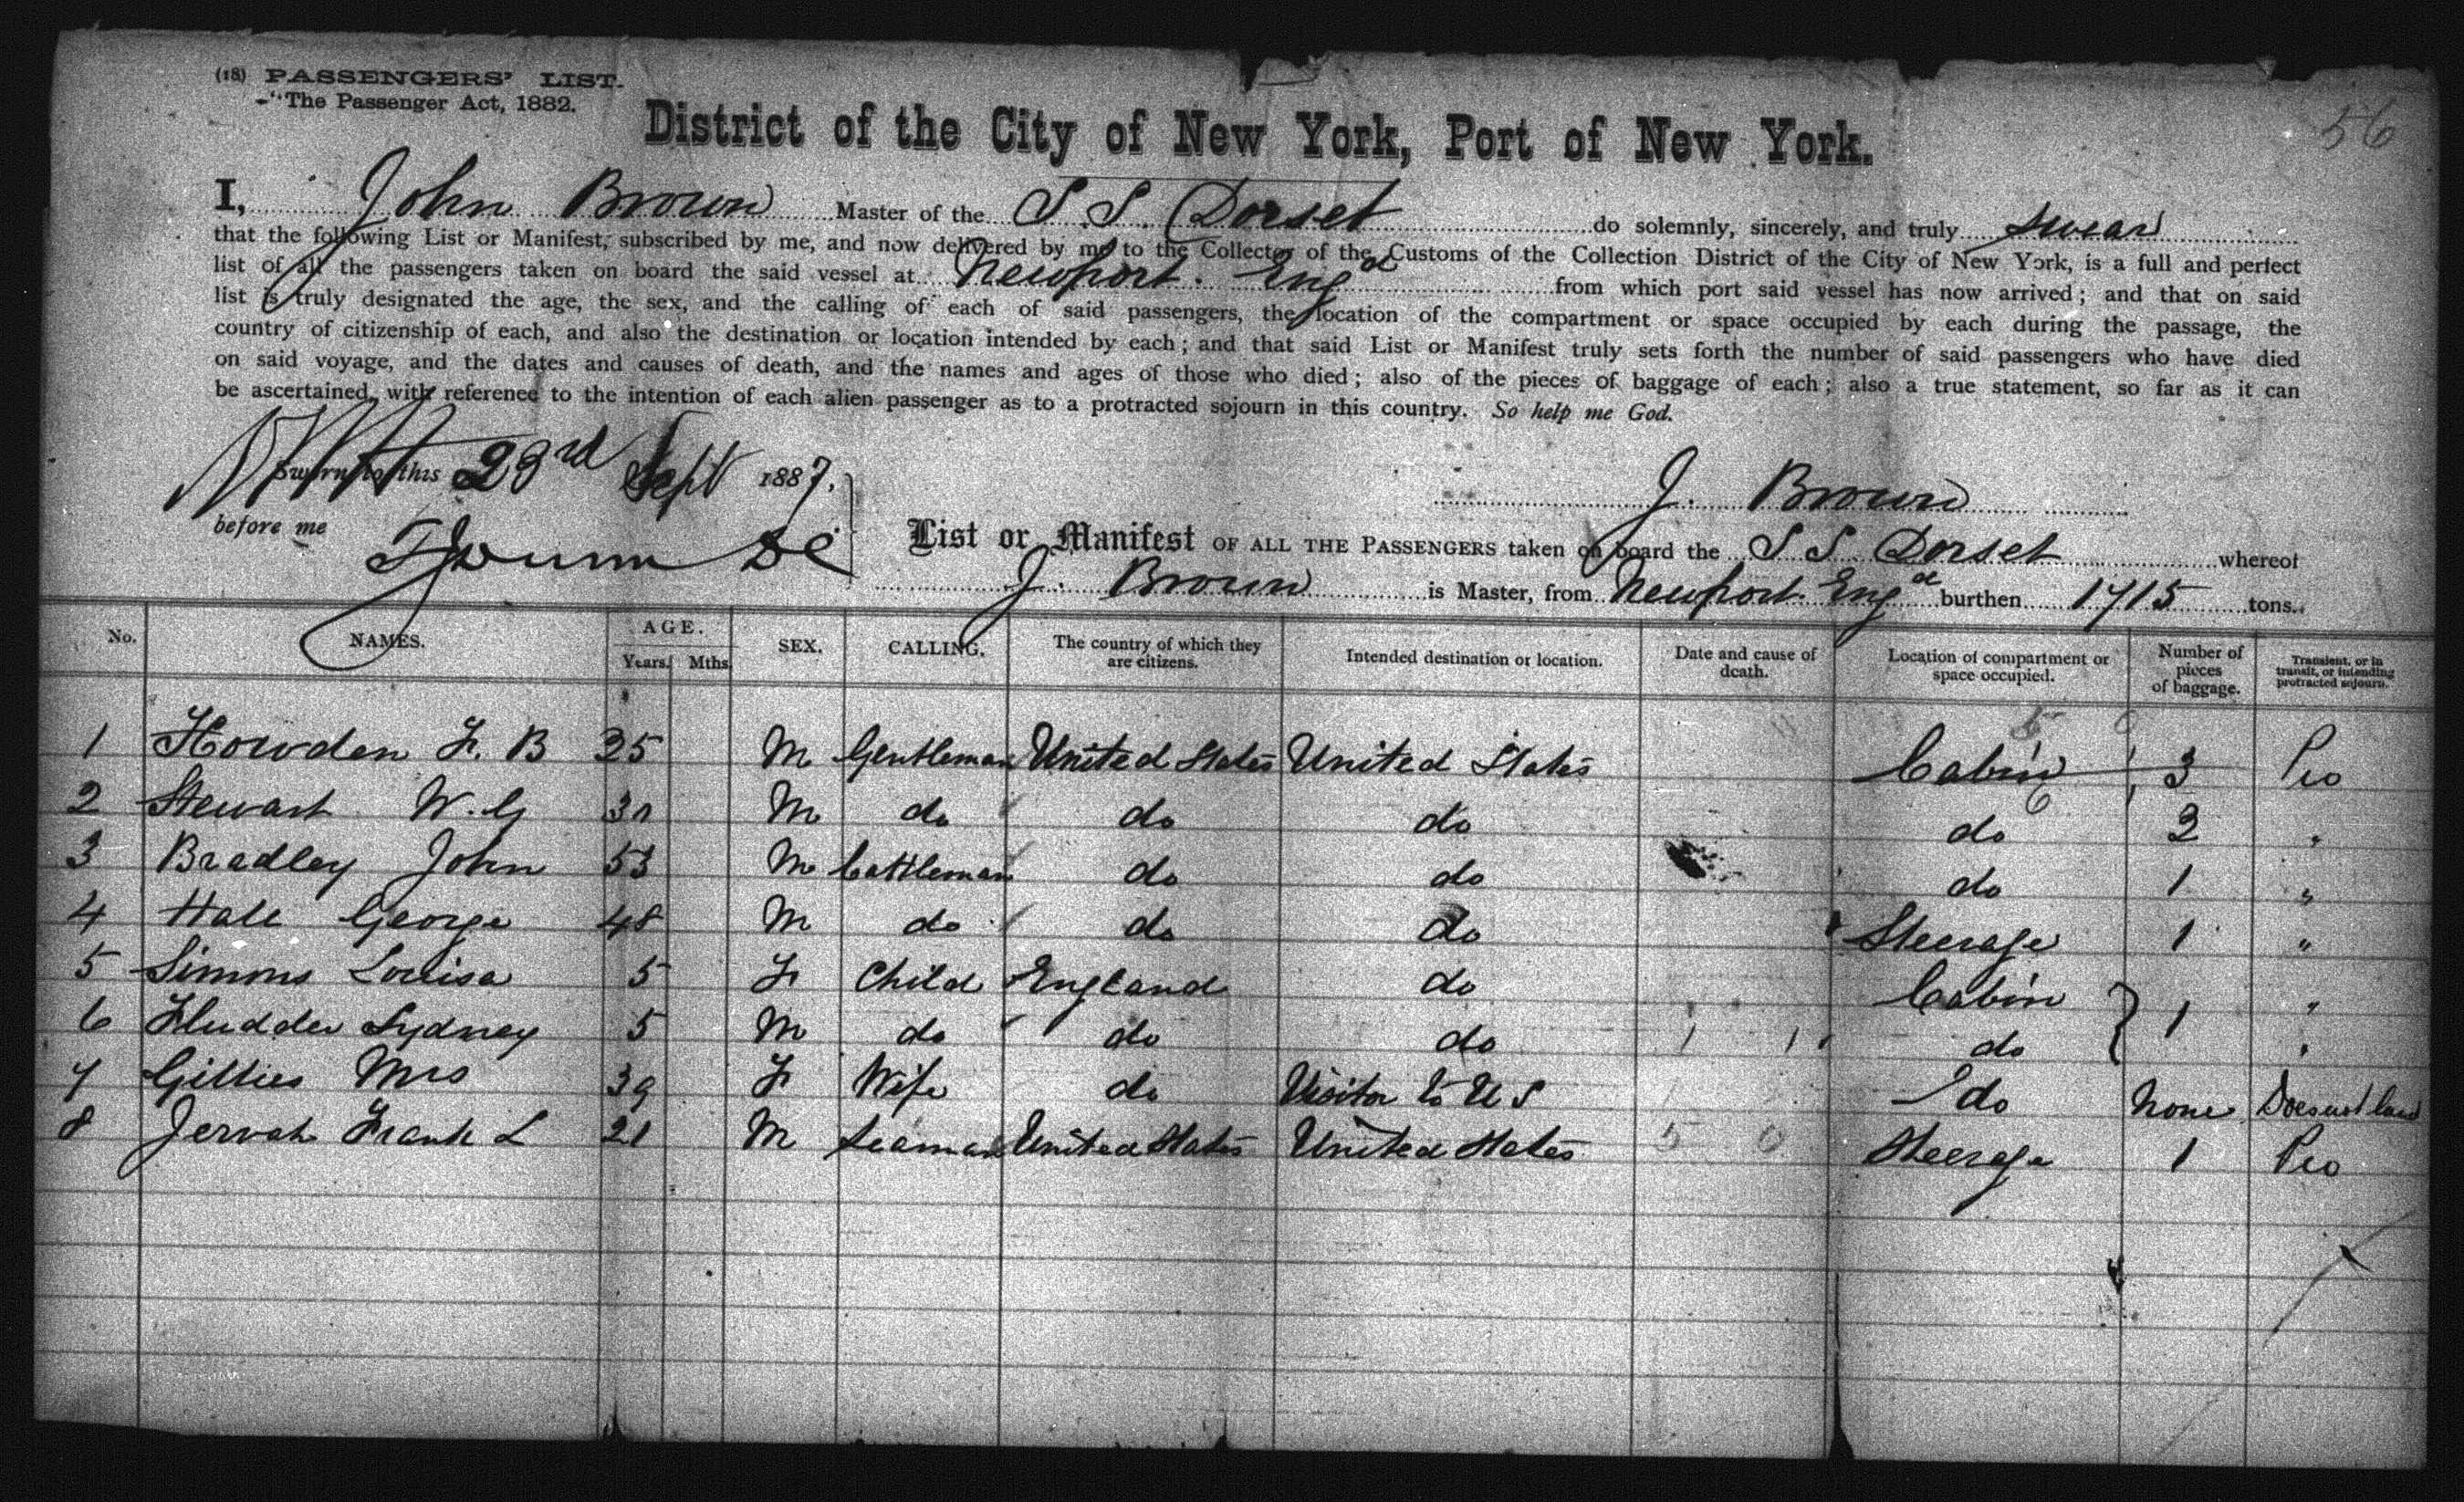 (18) PASSENGERS' LIST.
"The Passenger Act, 1882.
56
District of the City of New York, Port of New York.
I, John Brown Master of the S.S. Dorset do solemnly, sincerely, and truly swear
that the following List or Manifest, subscribed by me, and now delivered by me to the Collector of the Customs of the Collection District of the City of New York, is a full and perfect
list of all the passengers taken on board the said vessel at Newport. Engd from which port said vessel has now arrived; and that on said
list is truly designated the age, the sex, and the calling of each of said passengers, the location of the compartment or space occupied by each during the passage, the
country of citizenship of each, and also the destination or location intended by each; and that said List or Manifest truly sets forth the number of said passengers who have died
on said voyage, and the dates and causes of death, and the names and ages of those who died; also of the pieces of baggage of each; also a true statement, so far as it can
be ascertained, with reference to the intention of each alien passenger as to a protracted sojourn in this country. So help me God.
Sworn to this 23rd Sept 1887,
J. Brown
before me
List or Manifest OF ALL THE PASSENGERS taken on board the S S Dorset whereof
J. Brown is Master, from Newport Engd burthen 1715 tons.
No. NAMES. AGE. Years. Mths. SEX. CALLING. The country of which they are citizens. Intended destination or location. Date and cause of death. Location of compartment or space occupied. Number of pieces of baggage. Transient, or in transit, or intending protracted sojourn.
1 Howden F. B 35 M Gentleman United States United States Cabin 3 Pro
2 Stewart W. G M do do do do 2 "
3 Bradley John 53 M Cattleman do do do 1 "
4 Hall George 48 M do do do Steerage 1 "
5 Simms Louisa 5 F Child England do Cabin 1 "
6 Sydney 5 M do do do do "
7 Gillies Mrs 39 F Wife do Visitor to U S do None Does not land
8 Frank L 21 M Seaman United States United States Steerage 1 Pro